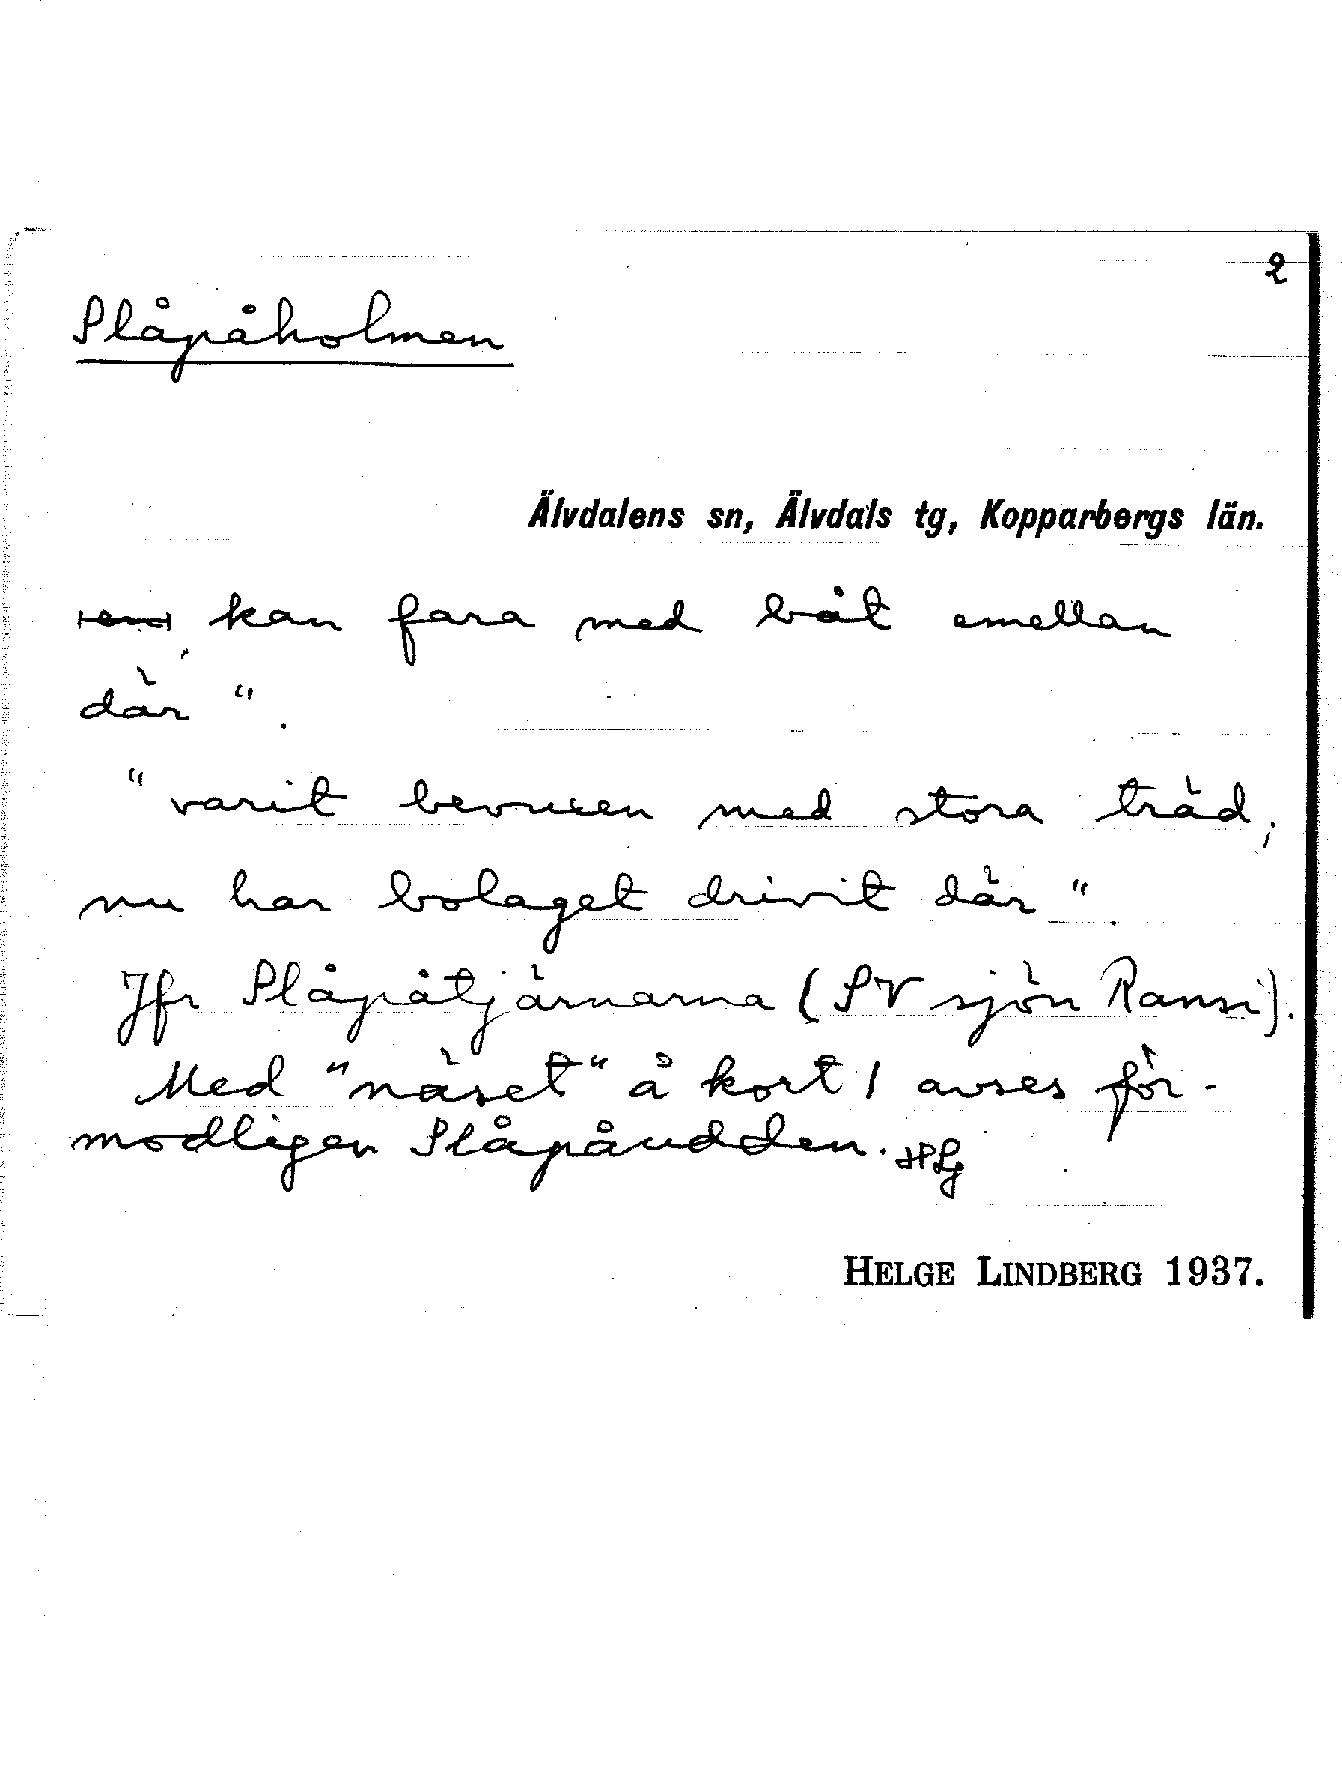 2
Slåpåholmen
Älvdalens sn, Älvdals tg, Kopparbergs län.
kan fara med båt emellan
där".
"varit bevuxen med stora träd;
nu har bolaget drivit där".
Jfr Slåpåtjärnarna (SV sjön Ransi).
Med "näset" å kort 1 avses för-
modligen Slåpåudden. HLg
HELGE LINDBERG 1937.